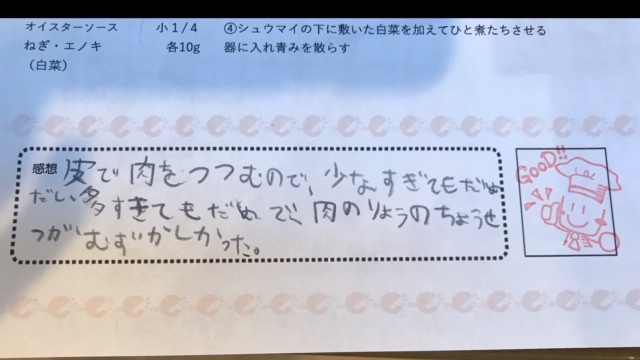 オイスターソース 小1/4 ④シュウマイの下に敷いた白菜を加えてひと煮たちさせる
ねぎ・エノキ 各10g 器に入れ青みを散らす
(白菜)
感想 皮で肉をつつむので、少なすぎてもだめ
だし、多すぎてもだめで、肉のりょうのちょうせ
つがむずかしかった。
GOOD!!
EBI